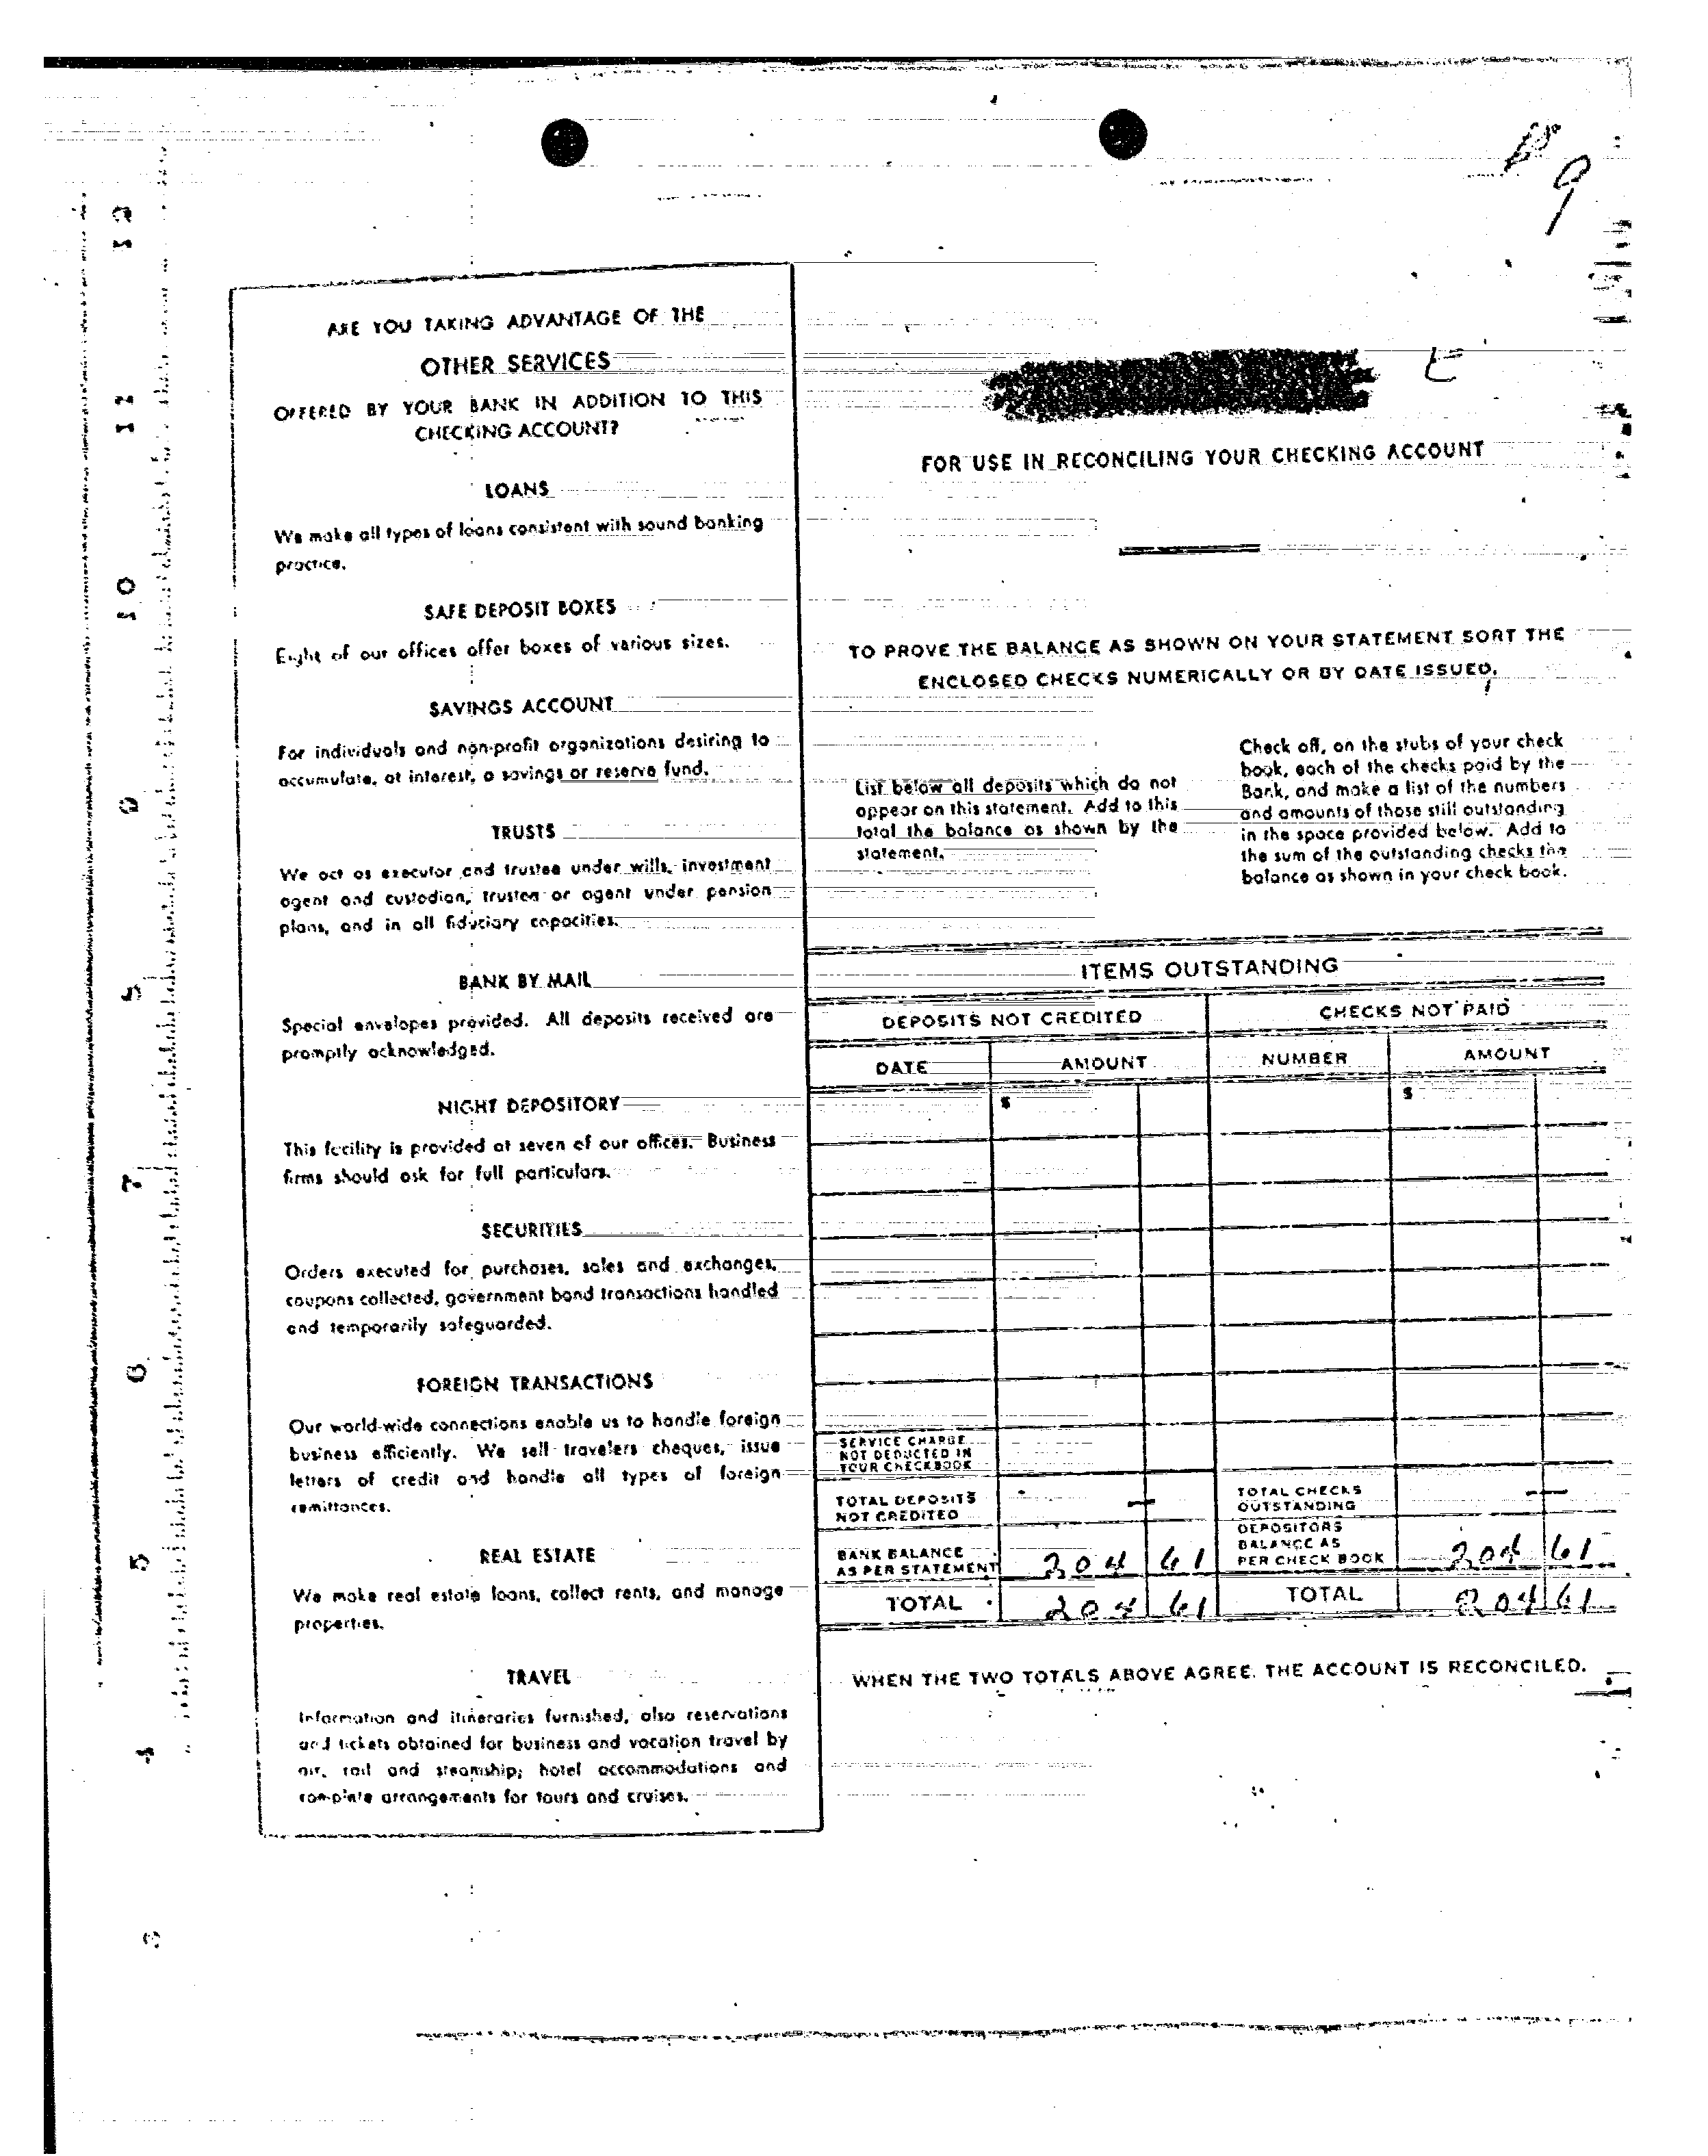 9
ARE YOU TAKING ADVANTAGE OF THE
OTHER SERVICES
OFFERED BY YOUR BANK IN ADDITION TO THIS
CHECKING ACCOUNT?
LOANS
We make all types of loans consistent with sound banking
practice.
SAFE DEPOSIT BOXES
Eight of our offices offer boxes of various sizes.
SAVINGS ACCOUNT
For individuals and non-profit organizations desiring to
accumulate, at interest, a savings or reserve fund.
TRUSTS
We act as executor and trustee under wills, investment
agent and custodian, trustee or agent under pension
plans, and in all fiduciary capacities.
BANK BY MAIL
Special envelopes provided. All deposits received are
promptly acknowledged.
NIGHT DEPOSITORY
This facility is provided at seven of our offices. Business
firms should ask for full particulars.
SECURITIES
Orders executed for purchases, sales and exchanges,
coupons collected, government bond transactions handled
and temporarily safeguarded.
FOREIGN TRANSACTIONS
Our world-wide connections enable us to handle foreign
business efficiently. We sell travelers cheques, issue
letters of credit and handle all types of foreign
remittances.
REAL ESTATE
We make real estate loans, collect rents, and manage
properties.
TRAVEL
Information and itineraries furnished, also reservations
and tickets obtained for business and vacation travel by
air, rail and steamship; hotel accommodations and
complete arrangements for tours and cruises.
FOR USE IN RECONCILING YOUR CHECKING ACCOUNT
TO PROVE THE BALANCE AS SHOWN ON YOUR STATEMENT SORT THE
ENCLOSED CHECKS NUMERICALLY OR BY DATE ISSUED.
List below all deposits which do not
appear on this statement. Add to this
total the balance as shown by the
statement.
Check off, on the stubs of your check
book, each of the checks paid by the
Bank, and make a list of the numbers
and amounts of those still outstanding
in the space provided below. Add to
the sum of the outstanding checks the
balance as shown in your check book.
ITEMS OUTSTANDING
DEPOSITS NOT CREDITED CHECKS NOT PAID
DATE AMOUNT NUMBER AMOUNT
$ $
SERVICE CHARGE
NOT DEDUCTED IN
YOUR CHECKBOOK
TOTAL DEPOSITS
NOT CREDITED —
TOTAL CHECKS
OUTSTANDING —
BANK BALANCE
AS PER STATEMENT 204 61
DEPOSITORS
BALANCE AS
PER CHECK BOOK 204 61
TOTAL 204 61 TOTAL 204 61
WHEN THE TWO TOTALS ABOVE AGREE, THE ACCOUNT IS RECONCILED.